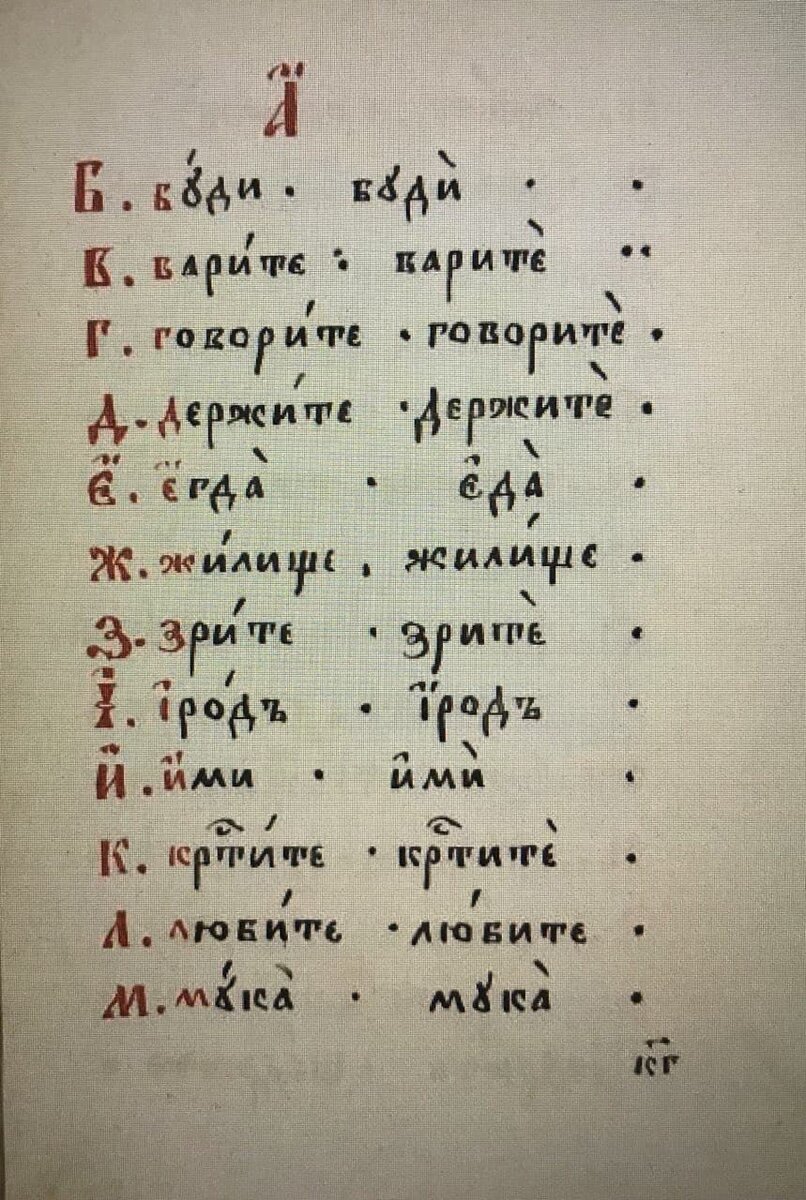 А҆̈
Б. бꙋ́ди · бꙋдѝ · ·
В. вари́те : варитѐ ··
Г. говори́те · говоритѐ ·
Д. держи́те · держитѐ ·
Є҆̈. є҆̈гда̀ · є҆да̀ ·
Ж. жи́лище . жили́ще ·
З. зри́те · зритѐ ·
І҆̈. і҆ро́дъ · і҆̈родъ ·
И҆̈. и҆̈ми · и҆мѝ ·
К. крⷭ҇ти́те · крⷭ҇титѐ ·
Л. люби́те · лю́бите ·
М. мꙋ́ка̀ · мꙋка̀ ·
к҃г